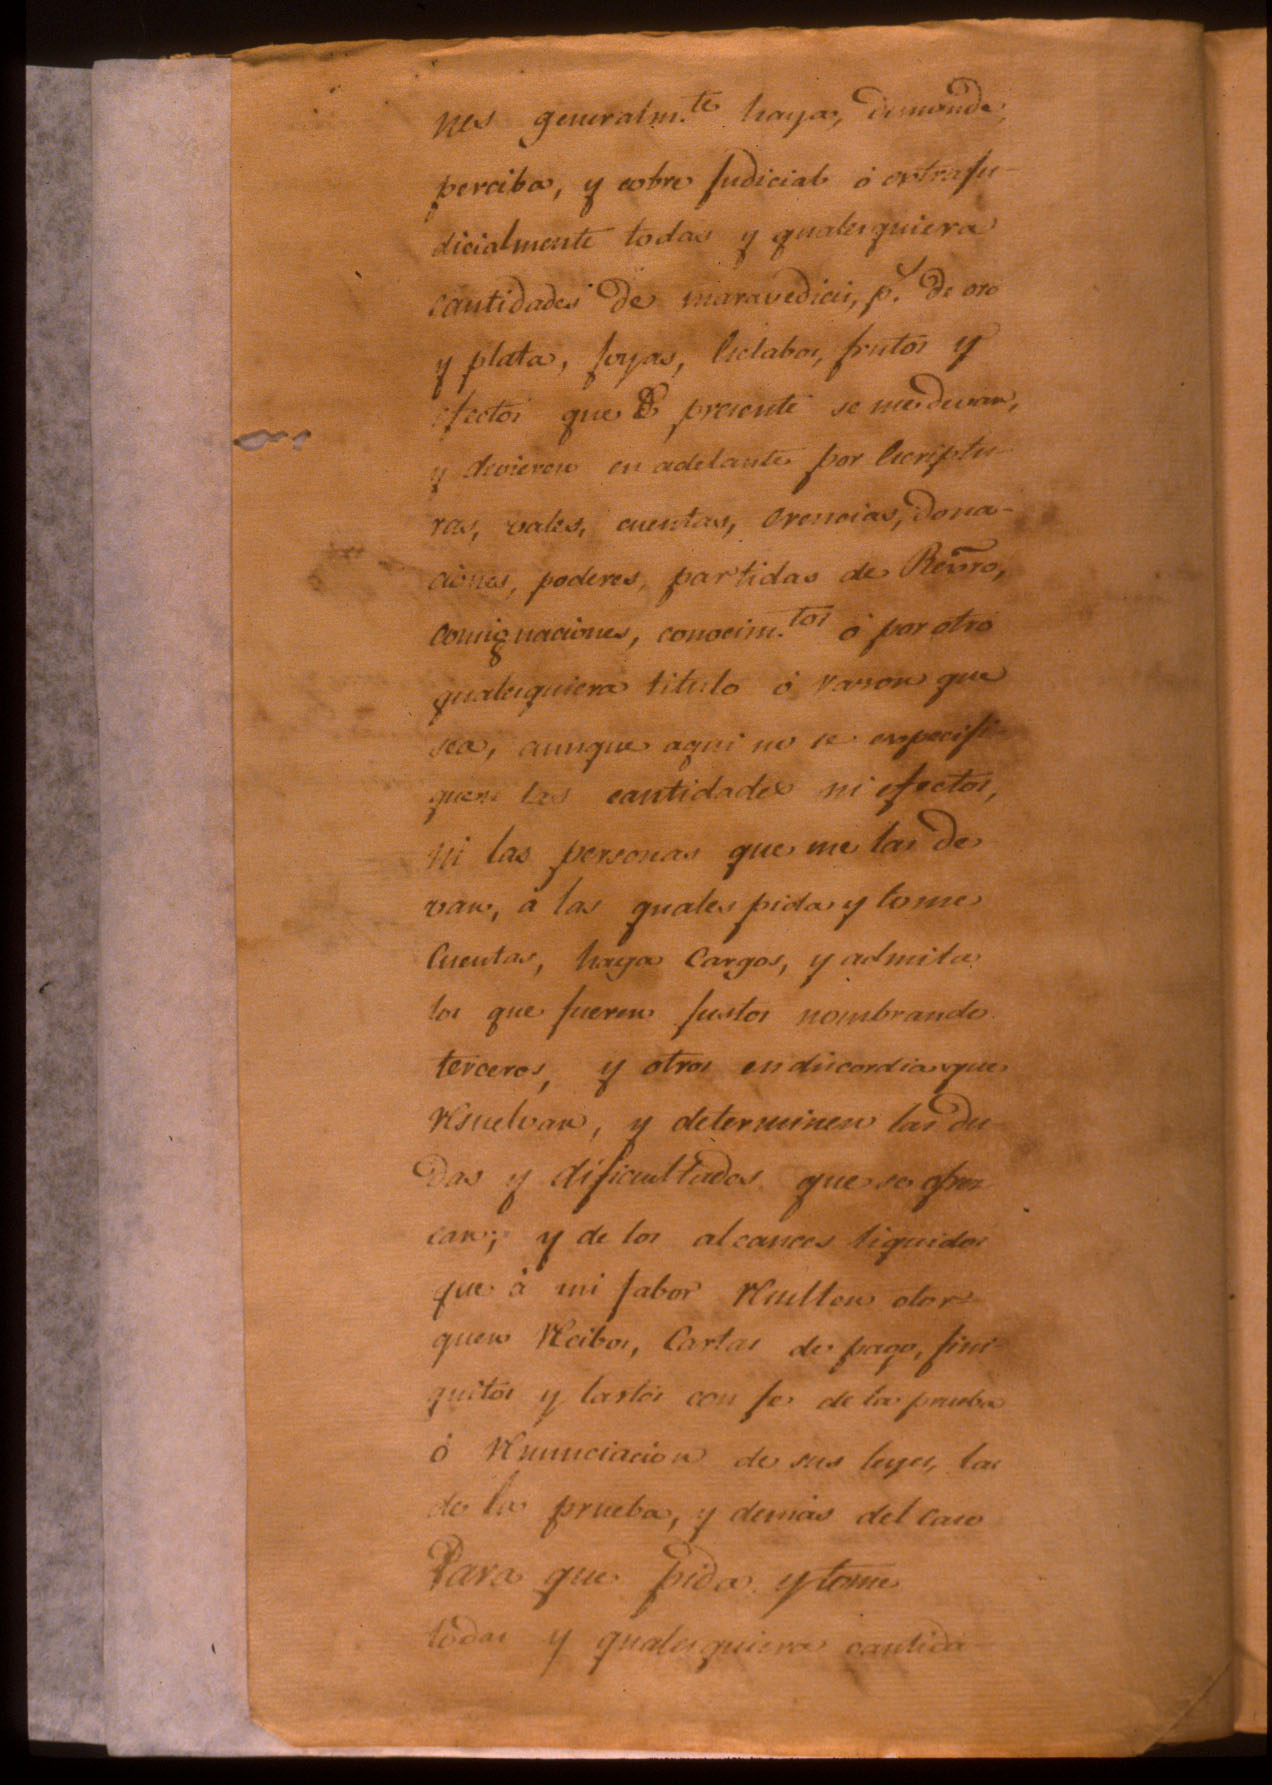 nes generalm.te haya, demande,
perciba, y cobre Judicial ó extraju-
dicialmente todas y qualesquiera
cantidades de maravedicis, p.s de oro
y plata, Joyas, Esclabos, frutos y
efectos que de presente se me devan,
y devieren en adelante por Escriptu-
ras, vales, cuentas, erencias, dona-
ciones, poderes, partidas de Rexro,
consignaciones, conocim.tos ó por otro
qualesquiera titulo ó rason que
sea, aunque aqui no se expecifi-
quen las cantidades ni efectos,
ni las personas que me las de
van, á las quales pida y tome
Cuentas, haga Cargos, y admita
los que fueren Justos nombrando
terceros, y otros en discordia que
resuelvan, y determinen las du-
das y dificultades que se ofrez
can; y de los alcances liquidos
que á mi fabor resulten otor-
guen recibos, Cartas de pago, fini-
quitos y lastos con fe de la prueba
ó renunciacion de sus leyes, las
de la prueba, y demas del caso
Para que pida y tome
todas y qualesquiera cantida-